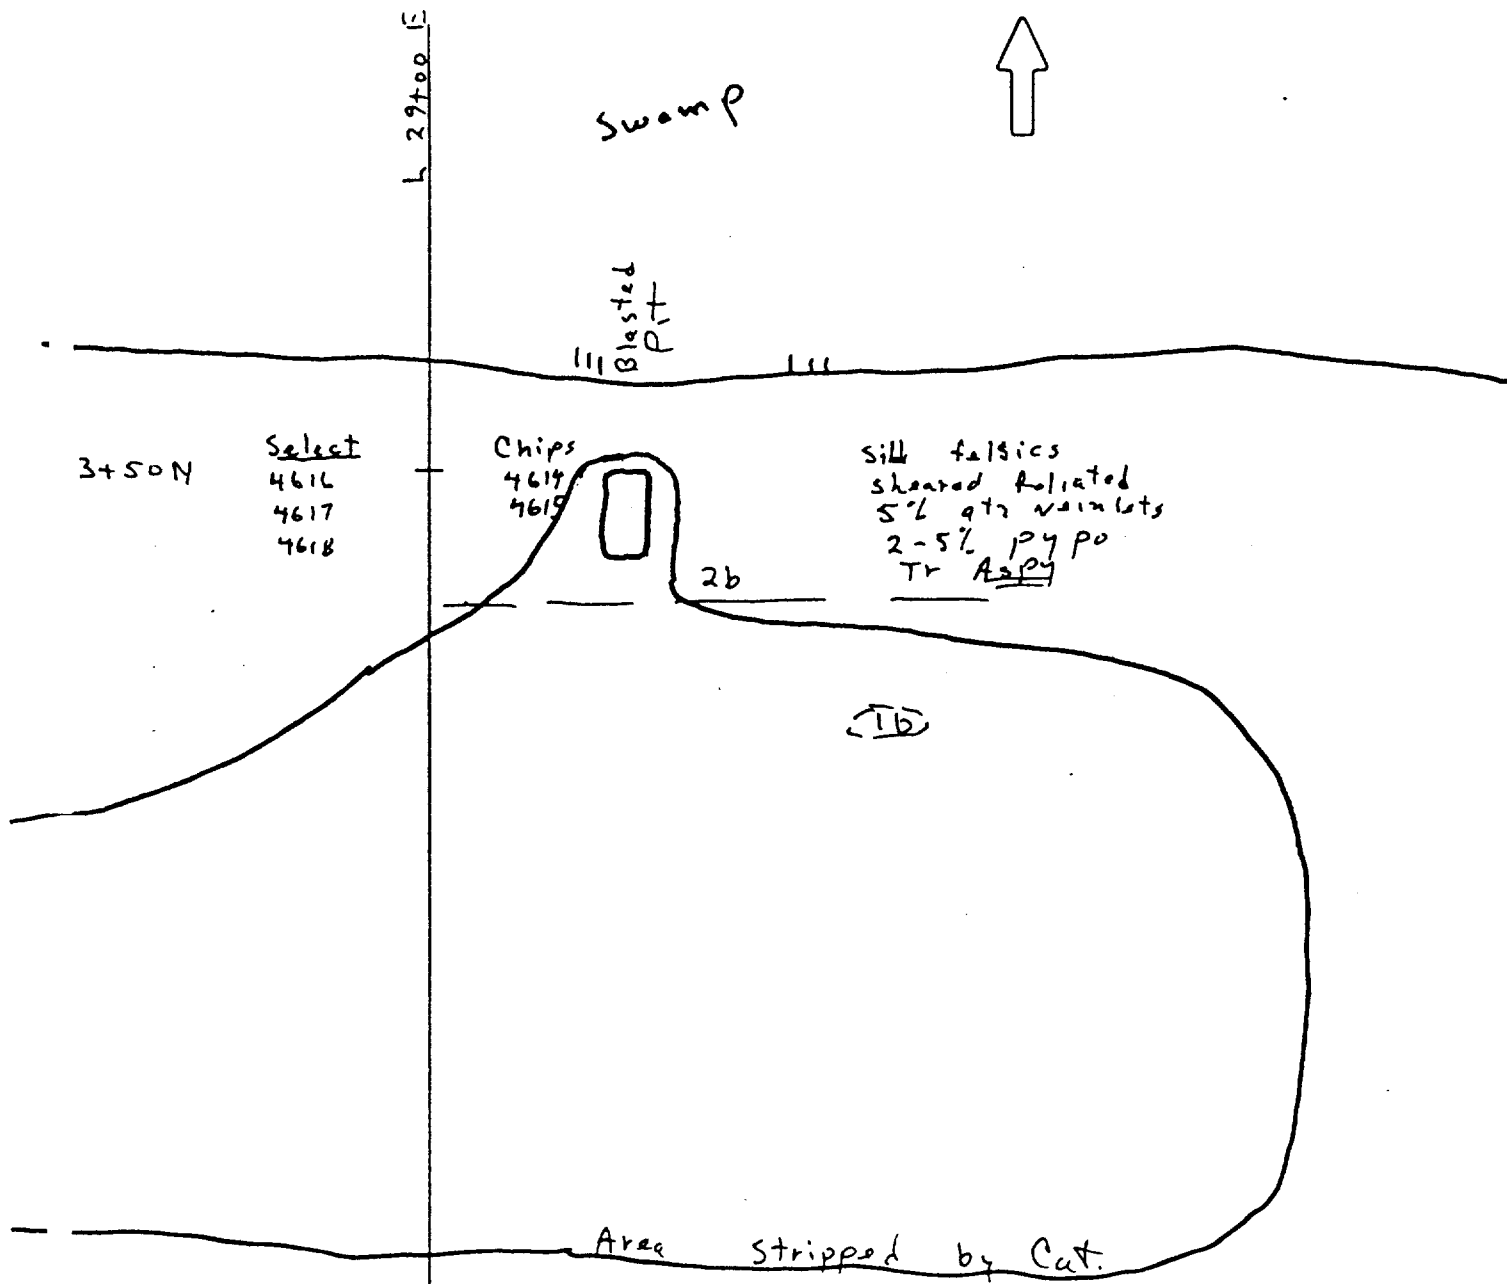 L 29+00 E
Swamp
Blasted
Pit
3+50N
Select
4616
4617
4618
Chips
4614
4615
Sill felsics
sheared foliated
5% qtz veinlets
2-5% py po
Tr Aspy
2b
1b
Area stripped by Cat.